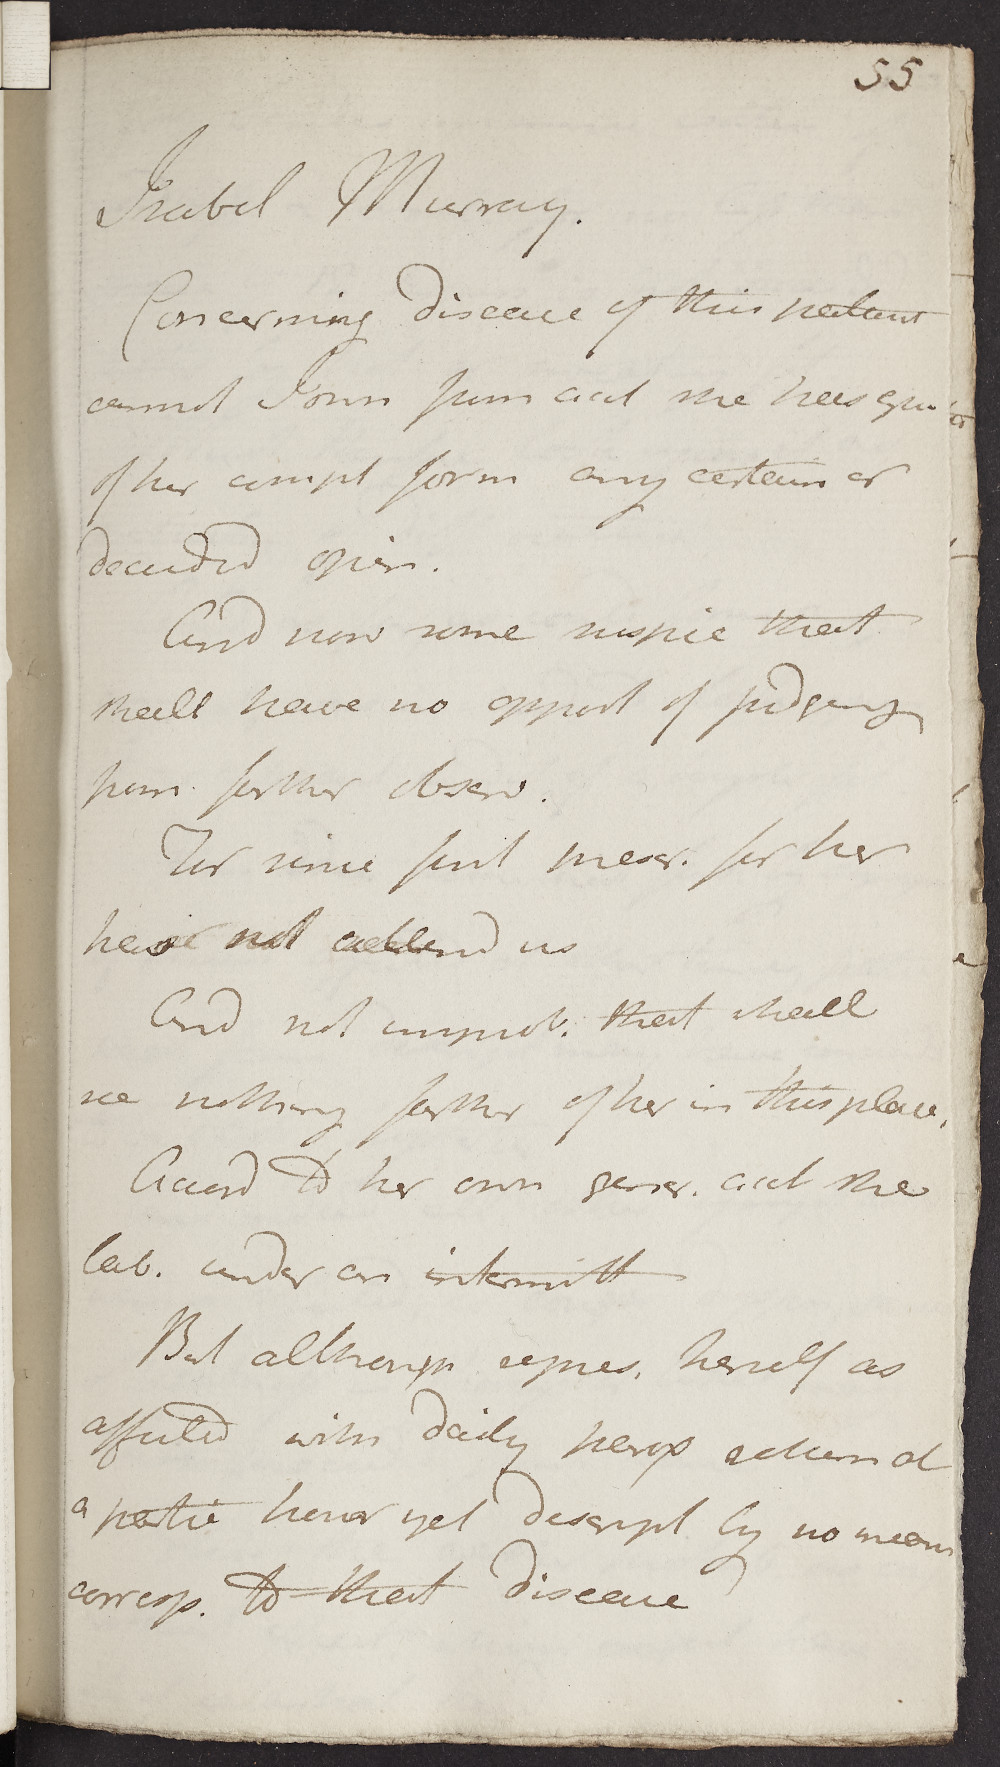 55
Isabel Murray.
Concerning disease of this patient
cannot I own from acct she has given
of her compt form any certain or
decided opin.
And now some suspic that
shall have no opport of judging
from farther observ.
For since first prescr. for her
has not attend us
And not improb. that shall
see nothing farther of her in this place.
Accord to her own gener. acct she
lab. under an intermitt
But although repres. herself as
affected with daily parox return at
a partic hour yet descript by no means
corresp. to that disease